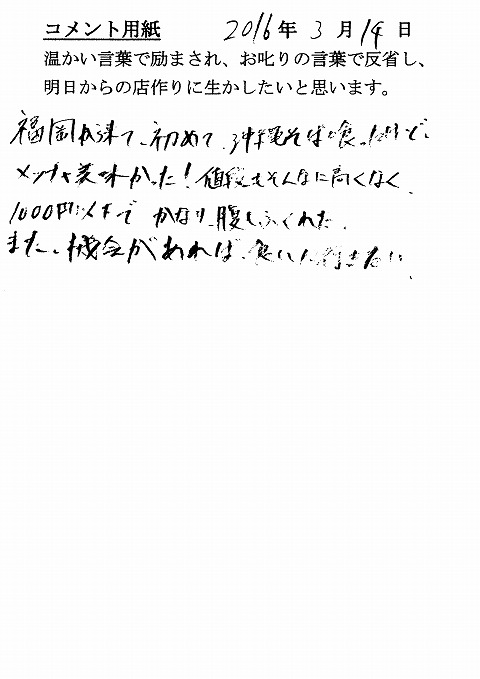 コメント用紙 2016年3月14日
温かい言葉で励まされ、お叱りの言葉で反省し、
明日からの店作りに生かしたいと思います。
福岡から来て、初めて、沖縄そば喰ったけど、
メッチャ美味かった!値段もそんなに高くなく、
1000円以下で かなり腹もふくれた。
また、機会があれば、食いに行きたい。